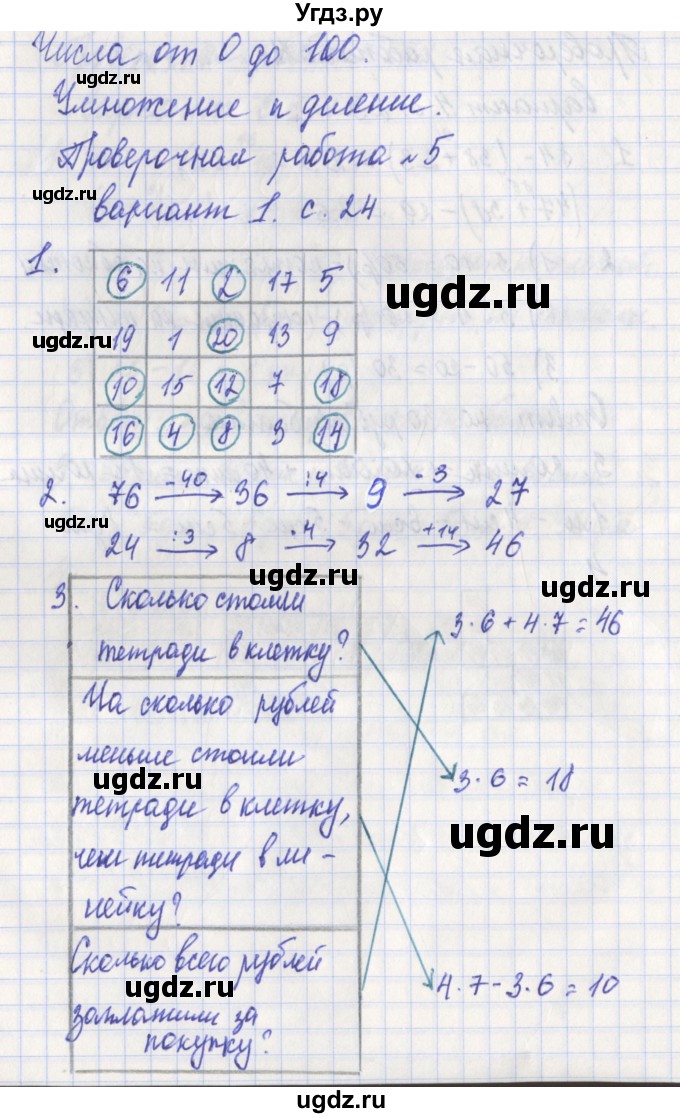 Угдз.ру
Числа от 0 до 100.
ugdz.ru
Умножение и деление.
ugdz.ru
Проверочная работа №5
ugdz.ru
вариант 1. с. 24
1.
6 11 2 17 5
ugdz.ru
19 1 20 13 9
ugdz.ru
10 15 12 7 18
16 4 8 3 14
ugdz.ru
2. 76 –40→ 36 :4→ 9 ·3→ 27
24 :3→ 8 ·4→ 32 +14→ 46
ugdz.ru
ugdz.ru
3. Сколько стоили
тетради в клетку?
3·6+4·7=46
ugdz.ru
На сколько рублей
меньше стоили
ugdz.ru
тетради в клетку,
3·6=18
ugdz.ru
чем тетради в ли-
нейку?
Сколько всего рублей
ugdz.ru
заплатили за
покупку?
4·7-3·6=10
ugdz.ru
ugdz.ru